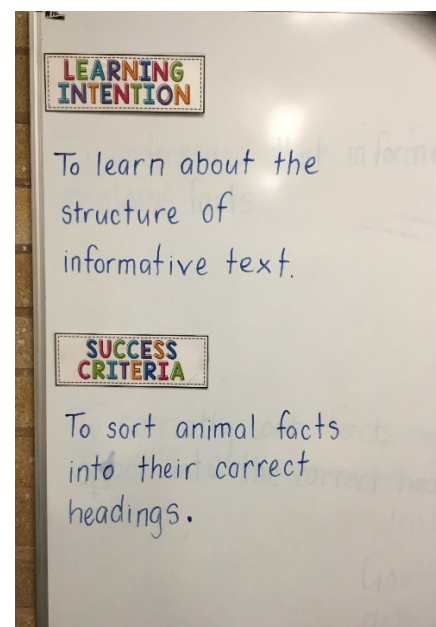 LEARNING
INTENTION
To learn about the
structure of
informative text.
SUCCESS
CRITERIA
To sort animal facts
into their correct
headings.